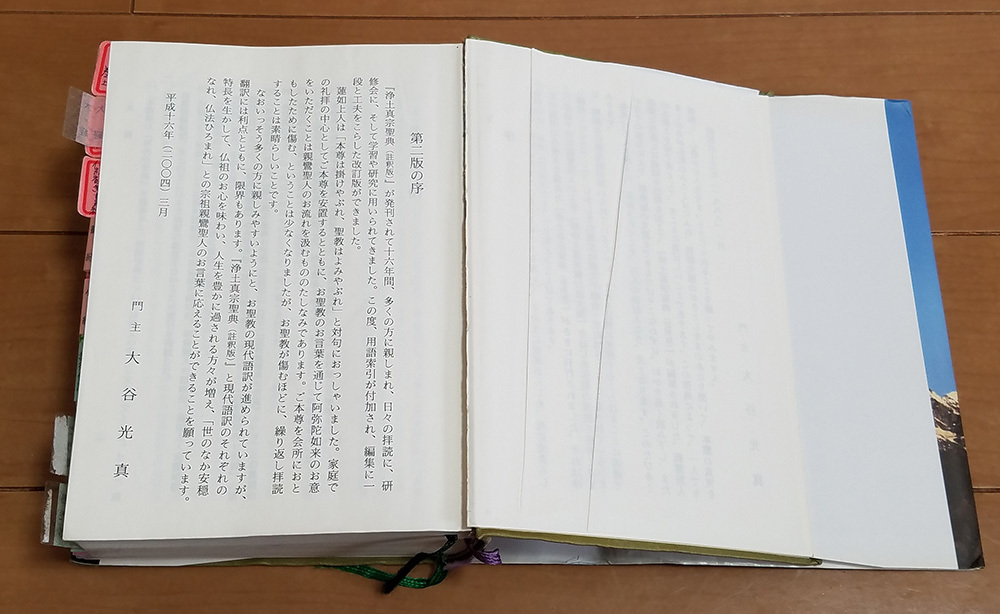 第二版の序
『浄土真宗聖典(註釈版)』が発刊されて十六年間、多くの方に親しまれ、日々の拝読に、研
修会に、そして学習や研究に用いられてきました。この度、用語索引が付加され、編集に一
段と工夫をこらした改訂版ができました。
蓮如上人は「本尊は掛けやぶれ、聖教はよみやぶれ」と対句におっしゃいました。家庭で
の礼拝の中心としてご本尊を安置するとともに、お聖教のお言葉を通じて阿弥陀如来のお意
をいただくことは親鸞聖人のお流れを汲むもののたしなみであります。ご本尊を会所におと
もしたために傷む、ということは少なくなりましたが、お聖教が傷むほどに、繰り返し拝読
することは素晴らしいことです。
なおいっそう多くの方に親しみやすいようにと、お聖教の現代語訳が進められていますが、
翻訳には利点とともに、限界もあります。『浄土真宗聖典(註釈版)』と現代語訳のそれぞれの
特長を生かして、仏祖のお心を味わい、人生を豊かに過される方々が増え、「世のなか安穏
なれ、仏法ひろまれ」との宗祖親鸞聖人のお言葉に応えることができることを願っています。
平成十六年(二〇〇四)三月
門主 大谷光真